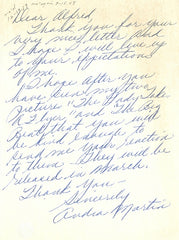 Dear Alfred,
Thank you for your
very nice letter and
I hope I will live up
to your expectations
of me.
I hope after you
have seen my two
pictures "The Lady Takes
A Flyer" and "The Big
Beat" that you will
be kind enough to
send me your reaction
to them. They will be
released in March.
Thank you —
Sincerely
Andra Martin